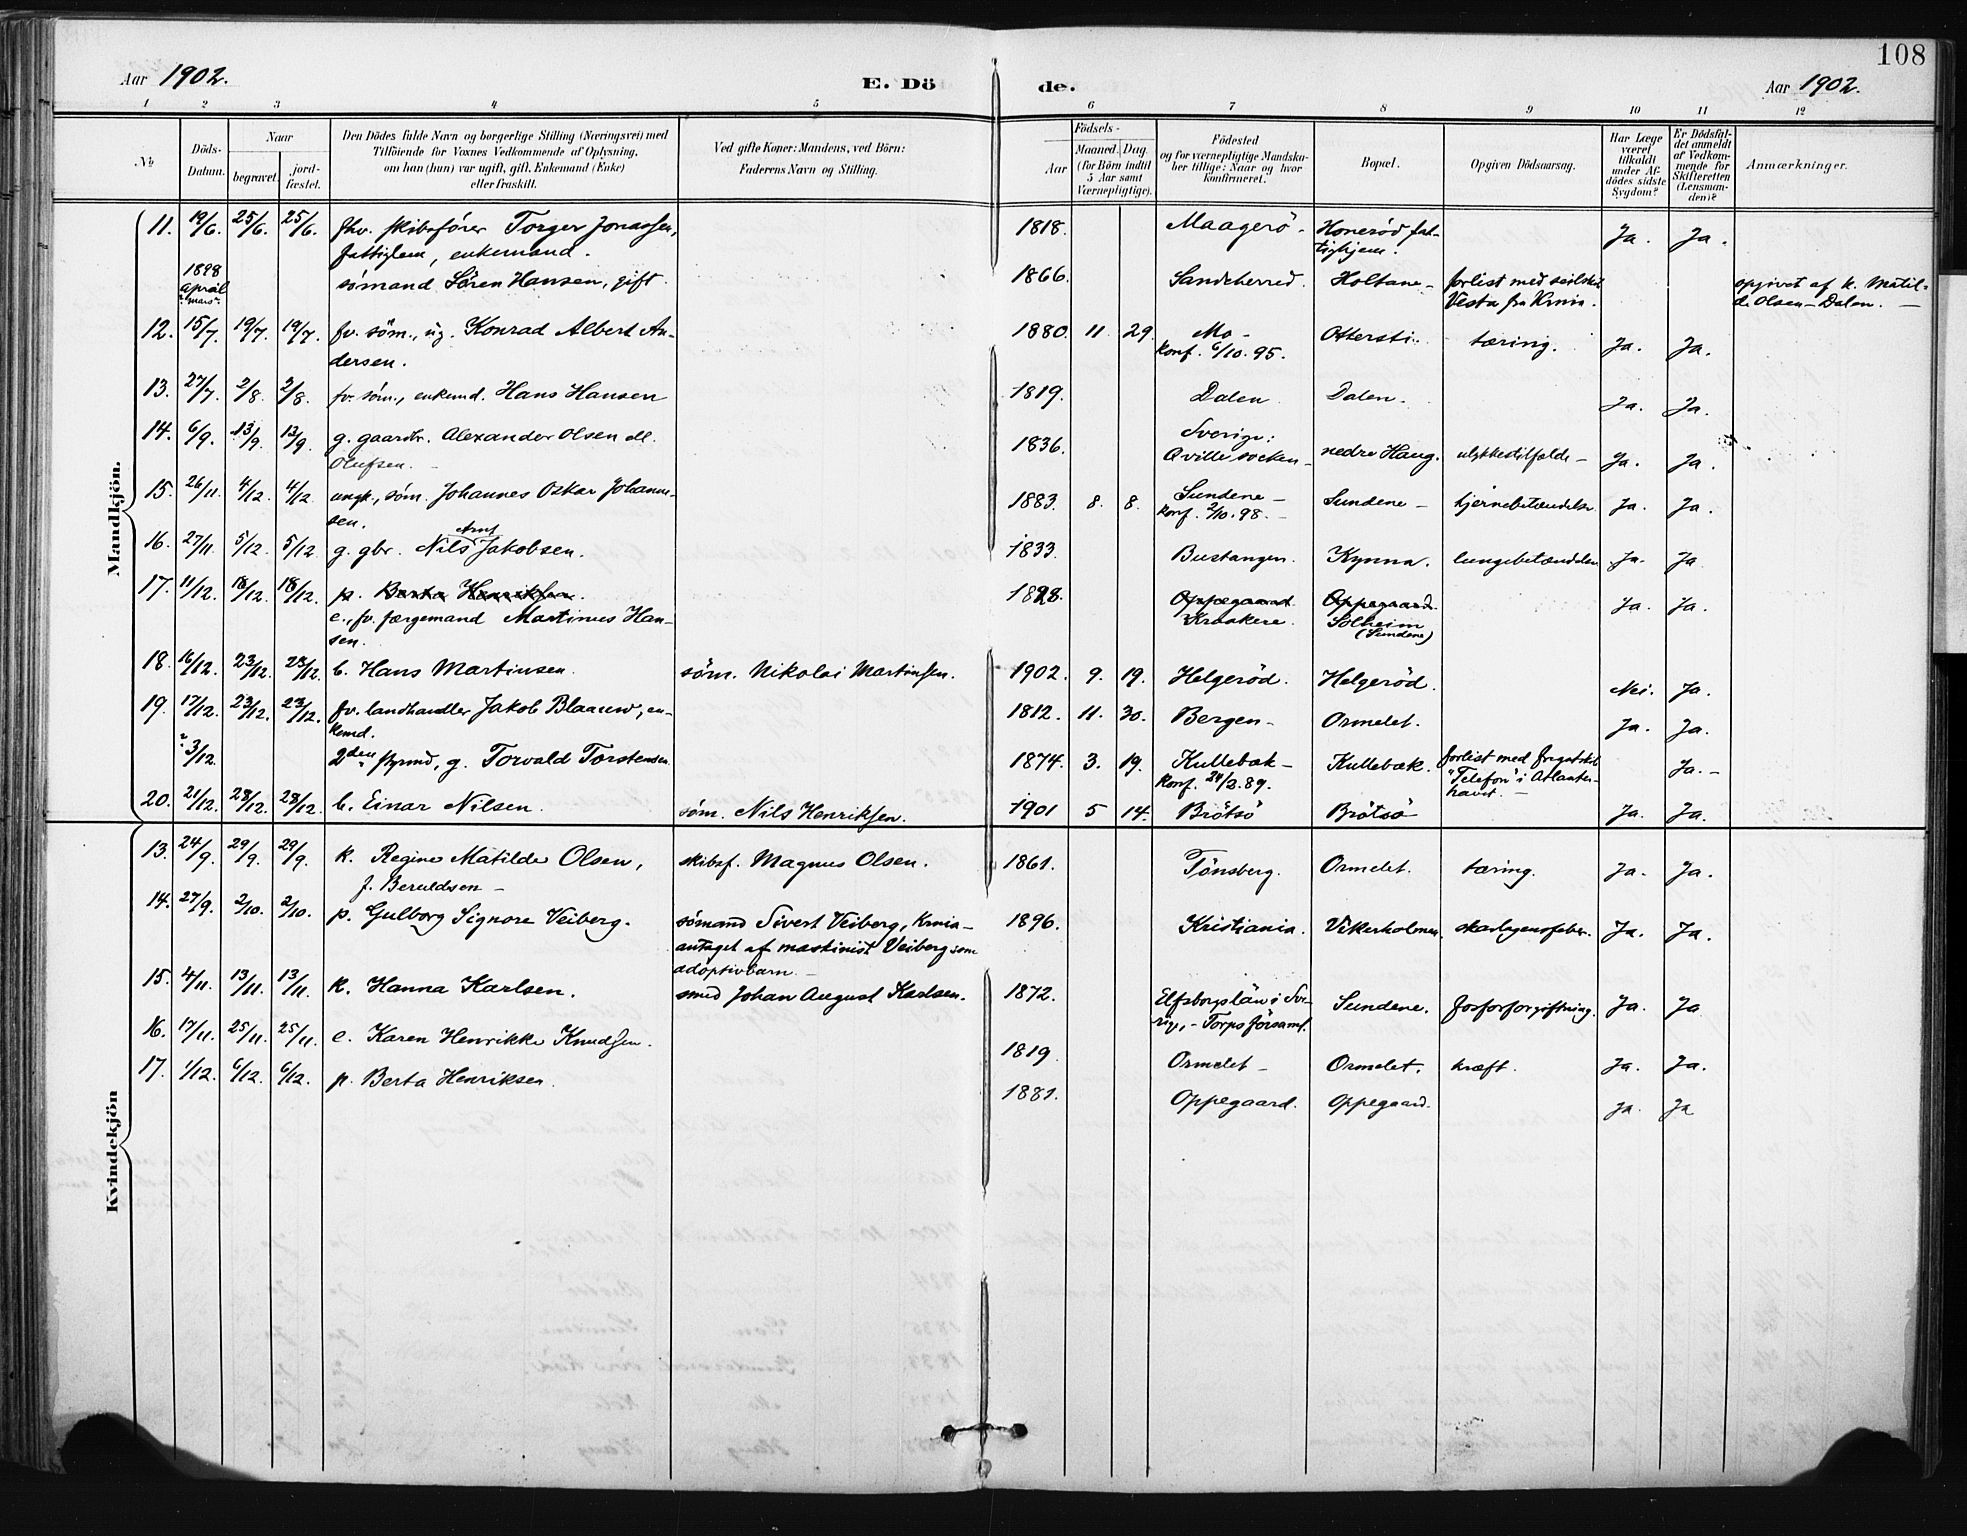 108
Aar 1902.
E. Dö de.
Aar 1902.
1 2 3 4 5 6 7 8 9 10 11 12
№
Döds-
Datum.
Naar
begravet.
jord-
fæstet.
Den Dödes fulde Navn og borgerlige Stilling (Næringsvei) med
Tilföiende for Voxnes Vedkommende af Oplysning,
om han (hun) var ugift, gift, Enkemand (Enke)
eller fraskilt.
Ved gifte Koner: Mandens, ved Börn:
Faderens Navn og Stilling.
Födsels-
Aar
Maaned. Dag.
(for Börn indtil
5 Aar samt
Værnepligtige).
Födested
og for værnepligtige Mandska-
ber tillige: Naar og hvor
konfirmeret.
Bopæl.
Opgiven Dödsaarsag.
Har Læge
været
tilkaldt
under Af-
dödes sidste
Sygdom?
Er Dödsfal-
det anmeldt
af Vedkom-
mende for
Skifteretten
(Lensman-
den)?
Anmærkninger.
Mandkjön.
11. 19/6. 25/6. 25/6. fhv. skibsfører Torger Jonassen, 1818. Maagerö. Honeröd fat- Ja. Ja.
fattiglem, enkemand. tighjem.
1898
april
"mars"
sømand Sören Hansen, gift. 1866. Sandeherred. Holtane- forlist med seilskib opgivet af k. Matil-
Vesta fra Krnia. de Olsen-Dalen. -
12. 15/7. 19/7. 19/7. fv. søm., ug. Konrad Albert An- 1880. 11. 29. Mo- Ottersti. tæring. Ja. Ja.
dersen. konf. 6/10. 95.
13. 27/7. 2/8. 2/8. fv. søm., enkemd. Hans Hansen 1819. Dalen. Dalen. Ja. Ja.
14. 6/9. 13/9. 13/9. g. gaardbr. Alexander Olsen ell. 1836. Sverige: nedre Haug. ulykkestilfælde- Ja. Ja.
Olufsen. - Qville socken-
15. 26/11. 4/12. 4/12. ungk., søm. Johannes Oskar Johanne- 1883. 8. 8. Sundene- Sundene- hjernebetændelse Ja. Ja.
sen. konf. 2/10. 98. -
16. 27/11. 5/12. 5/12. g. gbr. Nils Arnt Jakobsen. 1833. Bustangen. Kynna. lungebetændelse Ja. Ja
17. 11/12. 18/12. 18/12. p. Berta Henriksen. 1828. Oppegaard. Oppegaard. Ja. Ja.
e., fv. færgemand Martinus Han- Kraakere. Solheim
sen. (Sundene)
18. 16/12. 23/12. 23/12. b. Hans Martinsen. søm. Nikolai Martinsen. 1902. 9. 19. Helgeröd. Helgeröd. Nei. Ja.
19. 17/12. 23/12. 23/12. fv. landhandler Jakob Blaauw, en- 1812. 11. 30. Bergen- Ormelet. Ja. Ja.
kemd.
? 3/12. 2den styrmd, g. Torvald Torstensen. 1874. 3. 19. Kullebæk- Kullebæk. forlist med fregatskib Ja. -
konf. 24/2. 89. "Telefon" i Atlanter-
havet. -
20. 21/12. 28/12. 28/12. b. Einar Nilsen. søm. Nils Henriksen. 1901 5 14. Brötsö Brötsö Ja. Ja.
Kvindekjön
13. 24/9. 29/9. 29/9. k. Regine Matilde Olsen, skibsf. Magnus Olsen. 1861. Tönsberg. Ormelet. tæring. Ja. Ja.
f. Beruldsen -
14. 27/9. 2/10. 2/10. p. Gulborg Signore Veiberg. sömand Sivert Veiberg, Krnia- 1896. Kristiania. Vikerholmen. skarlagensfeber. Ja. Ja.
antaget af maskinist Veiberg som
adoptivbarn -
15. 4/11. 13/11. 13/11. k. Hanna Karlsen. smed Johan August Karlsen. 1872. Elfsborgslän i Sve- Sundene. fosforforgiftning. Ja. Ja
rige, - Torps församl.
16. 17/11. 25/11. 25/11. e. Karen Henrikke Knudsen. 1819. Ormelet- Ormelet. kræft. Ja. Ja.
17. 1/12. 6/12. 6/12. p. Berta Henriksen. 1881. Oppegaard. Oppegaard. Ja. Ja